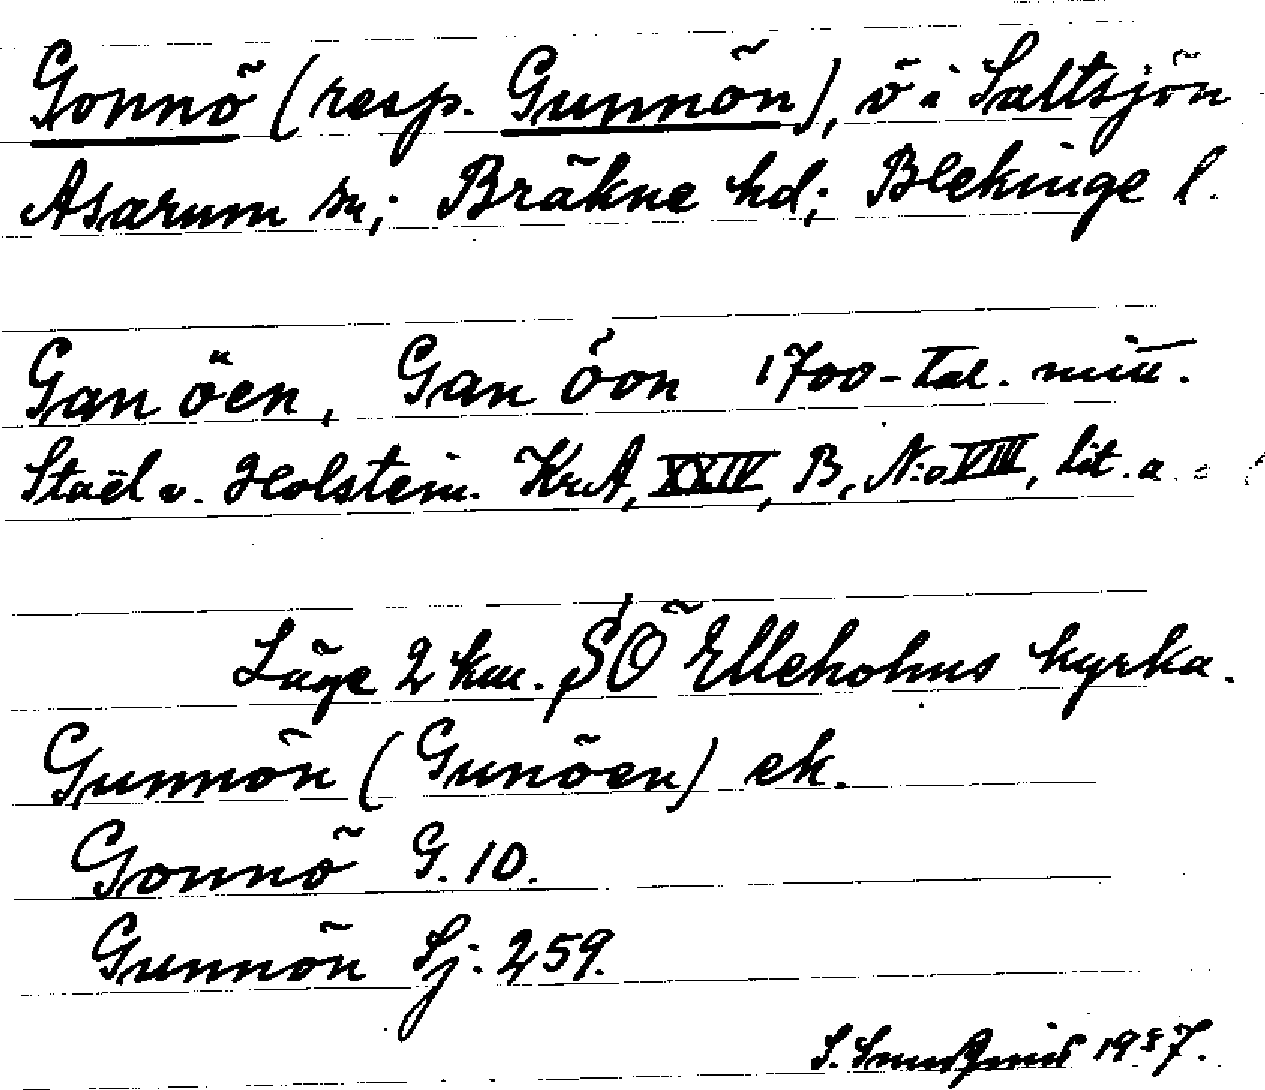 Gonnö (resp. Gunnön), ö i Saltsjön
Asarum sn; Bräkne hd; Blekinge l.
Gan öen, Gan öon 1700-tal. mitt.
Staël v. Holstein. KrA, XXIV, B, N:o VIII, lit. a
Läge 2 km. SÖ Ellehohns kyrka.
Gunnön (Gunöen) ek.
Gonnö G. 10.
Gunnön Sj: 259.
S. 1937.